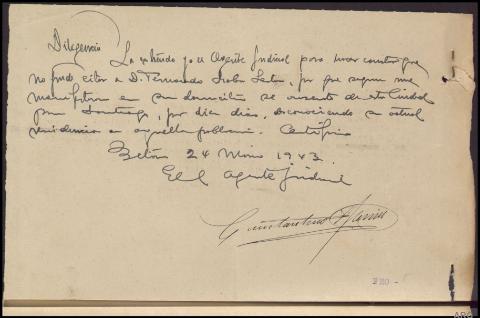 Diligencia
La extiendo yo el Agente Judicial para hacer constar que
no pude citar a D. Fernando, por que según me
manifiestan en su domicilio se ausentó de esta Ciudad
para Santiago, por diez días, desconociendo su actual
residencia en aquella población. Certifico
24 Marzo 1943.
El Agente Judicial
Constantino
280 -